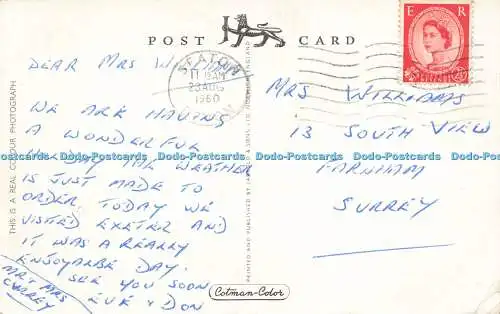 POST CARD
E R
SEATON
11 15AM
23 AUG
1960
DEAR MRS
WE ARE HAVING
A WONDERFUL
HOLIDAY THE WEATHER
IS JUST MADE TO
ORDER. TODAY WE
VISITED EXETER AND
IT WAS A REALLY
ENJOYALBE DAY.
SEE YOU SOON
EVE & DON
MR & MRS
CURREY
MRS WILLIAMS
13 SOUTH VIEW
FARNHAM
SURREY
THIS IS A REAL COLOUR PHOTOGRAPH
PRINTED AND PUBLISHED BY
Cotman-Color
Dodo-Postcards Dodo-Postcards Dodo-Postcards Dodo-Postcards Dodo-Postcards Dodo-Postcards